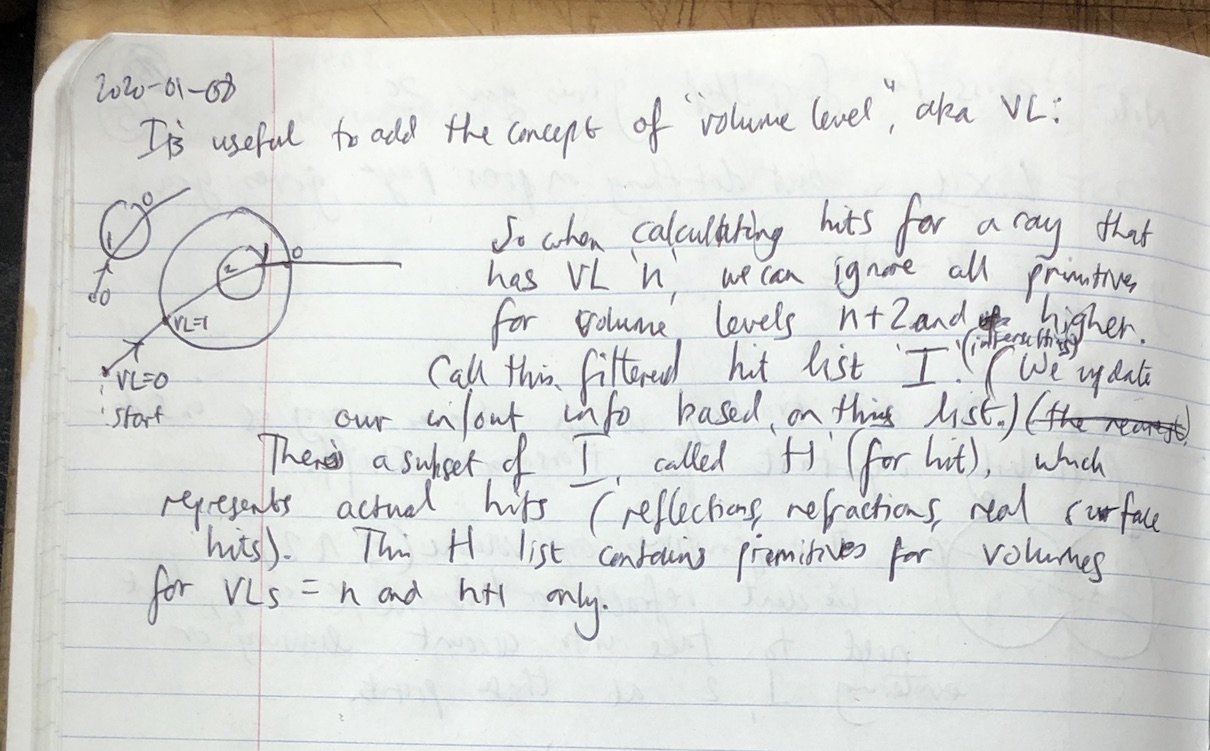 2020-01-08
It's useful to add the concept of "volume level", aka VL:
0
1
0
2
1
0
VL=1
VL=0
start
So when calculating hits for a ray that
has VL 'n', we can ignore all primitives
for volume levels n+2 and higher.
Call this filtered hit list 'I' (intersections). (We update
our in/out info based on this list.) (the nearest)
There's a subset of I, called 'H' (for hit), which
represents actual hits (reflections, refractions, real surface
hits). This H list contains primitives for volumes
for VLs = n and n+1 only.